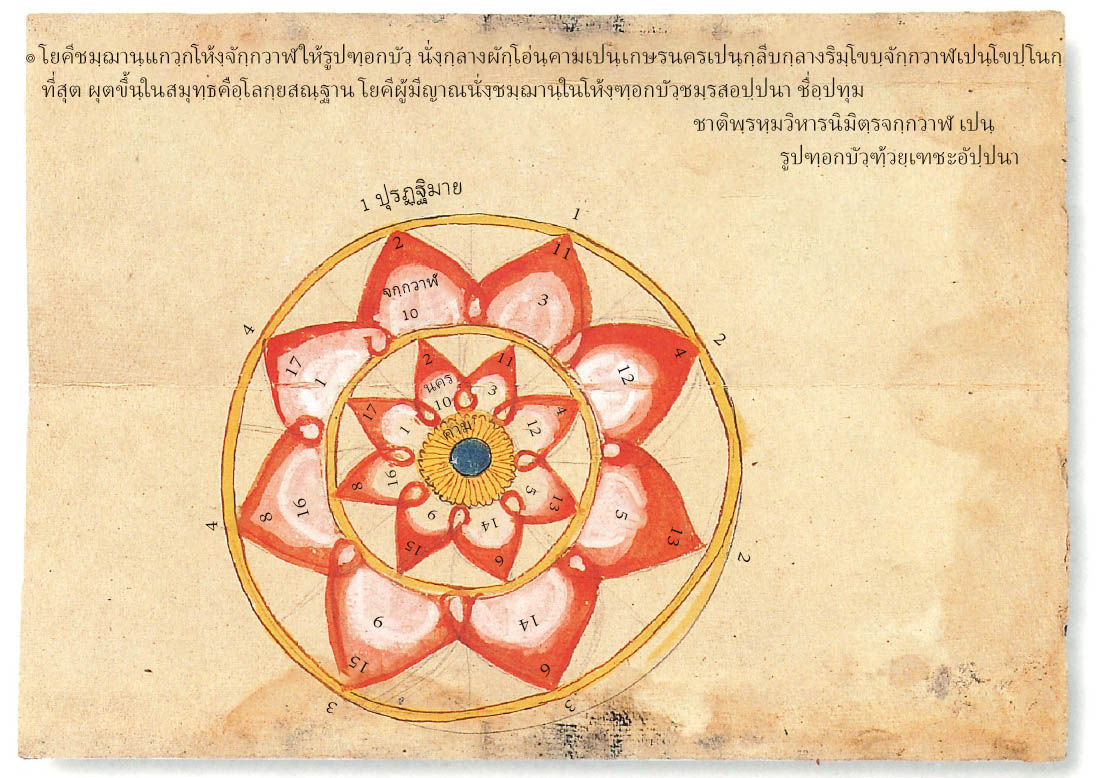 ๏ โยคีชมฺฌานฺแกวฺกโหํงฺจักฺกวาฬํให้รูปฑฺอกบัวฺ นั่งฺกฺลางผักฺโอ่นฺคามเปนฺเกษรนครเปนฺกฺลีบกฺลางริมฺโขบฺจักฺกวาฬํเปนฺโขปฺโนกฺ
ที่สุต ผุตขึ้นฺในสมุทฺธํคือฺโลกฺยสณฺฐาน โยคีผู้มีญาณนั่งฺชมฺฌานฺในโห้งฺฑฺอกบัวฺชมฺรสอปฺปนา ชื่อฺปทุม
ชาติพฺรหฺมวิหารนิมิตฺรจกฺกวาฬํ เปนฺ
รูปฑฺอกบัวฺฑฺ้วยฺเฑชะอัปฺปนา
1 ปุรฏฺฐิมาย
1
2
11
จกฺกวาฬํ
10
3
4
2
17
1
4
12
2
11
นคร
10
3
17
4
1
12
คาม
8
16
5
13
9
14
15
6
8
16
5
13
4
2
9
14
15
6
3
3